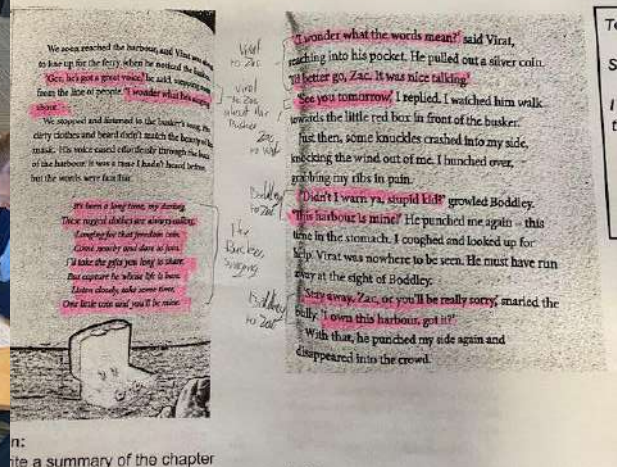 We soon reached the harbour, and Virat was
to line up for the ferry when he noticed the busker.
'Gee, he's got a great voice,' he said, stepping
from the line of people. 'I wonder what he's singing
about.'
We stopped and listened to the busker's song. His
dirty clothes and beard didn't match the beauty of his
music. His voice eased effortlessly through the
of the harbour. It was a time I hadn't heard before,
but the words were familiar.
It's been a long time, my darling,
These ragged clothes are always calling,
Longing for that freedom coin.
Come nearby and dare to join.
I'll take the gifts you long to share,
But capture he whose life is bare.
Listen closely, take some time,
One little coin and you'll be mine.
Virat
to Zac
Virat
to Zac
about the
Busker
Zac
Boddley
to Zac
The
Buskers
singing
Boddley
to Zac
'I wonder what the words mean?' said Virat,
reaching into his pocket. He pulled out a silver coin.
'I'd better go, Zac. It was nice talking.'
'See you tomorrow,' I replied. I watched him walk
towards the little red box in front of the busker.
Just then, some knuckles crashed into my side,
knocking the wind out of me. I hunched over,
grabbing my ribs in pain.
'Didn't I warn ya, stupid kid?' growled Boddley.
'This harbour is mine!' He punched me again – this
time in the stomach. I coughed and looked up for
help. Virat was nowhere to be seen. He must have run
away at the sight of Boddley.
'Stay away, Zac, or you'll be really sorry,' snarled the
bully. 'I own this harbour, got it?'
With that, he punched my side again and
disappeared into the crowd.
n:
ite a summary of the chapter